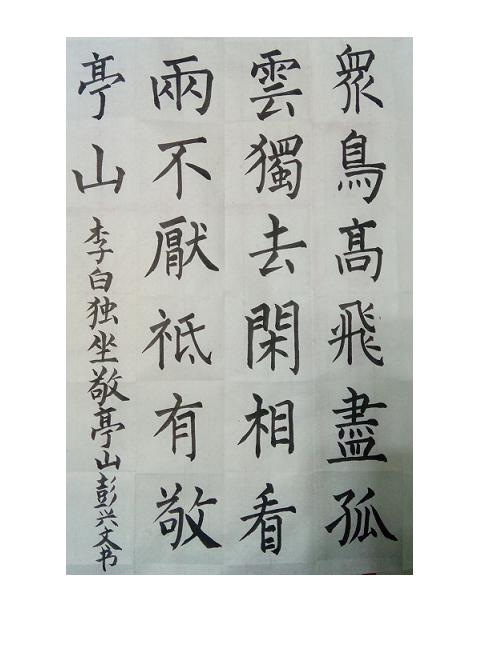 眾鳥髙飛盡孤
雲獨去閑相看
兩不厭祗有敬
亭山
李白独坐敬亭山彭兴文书